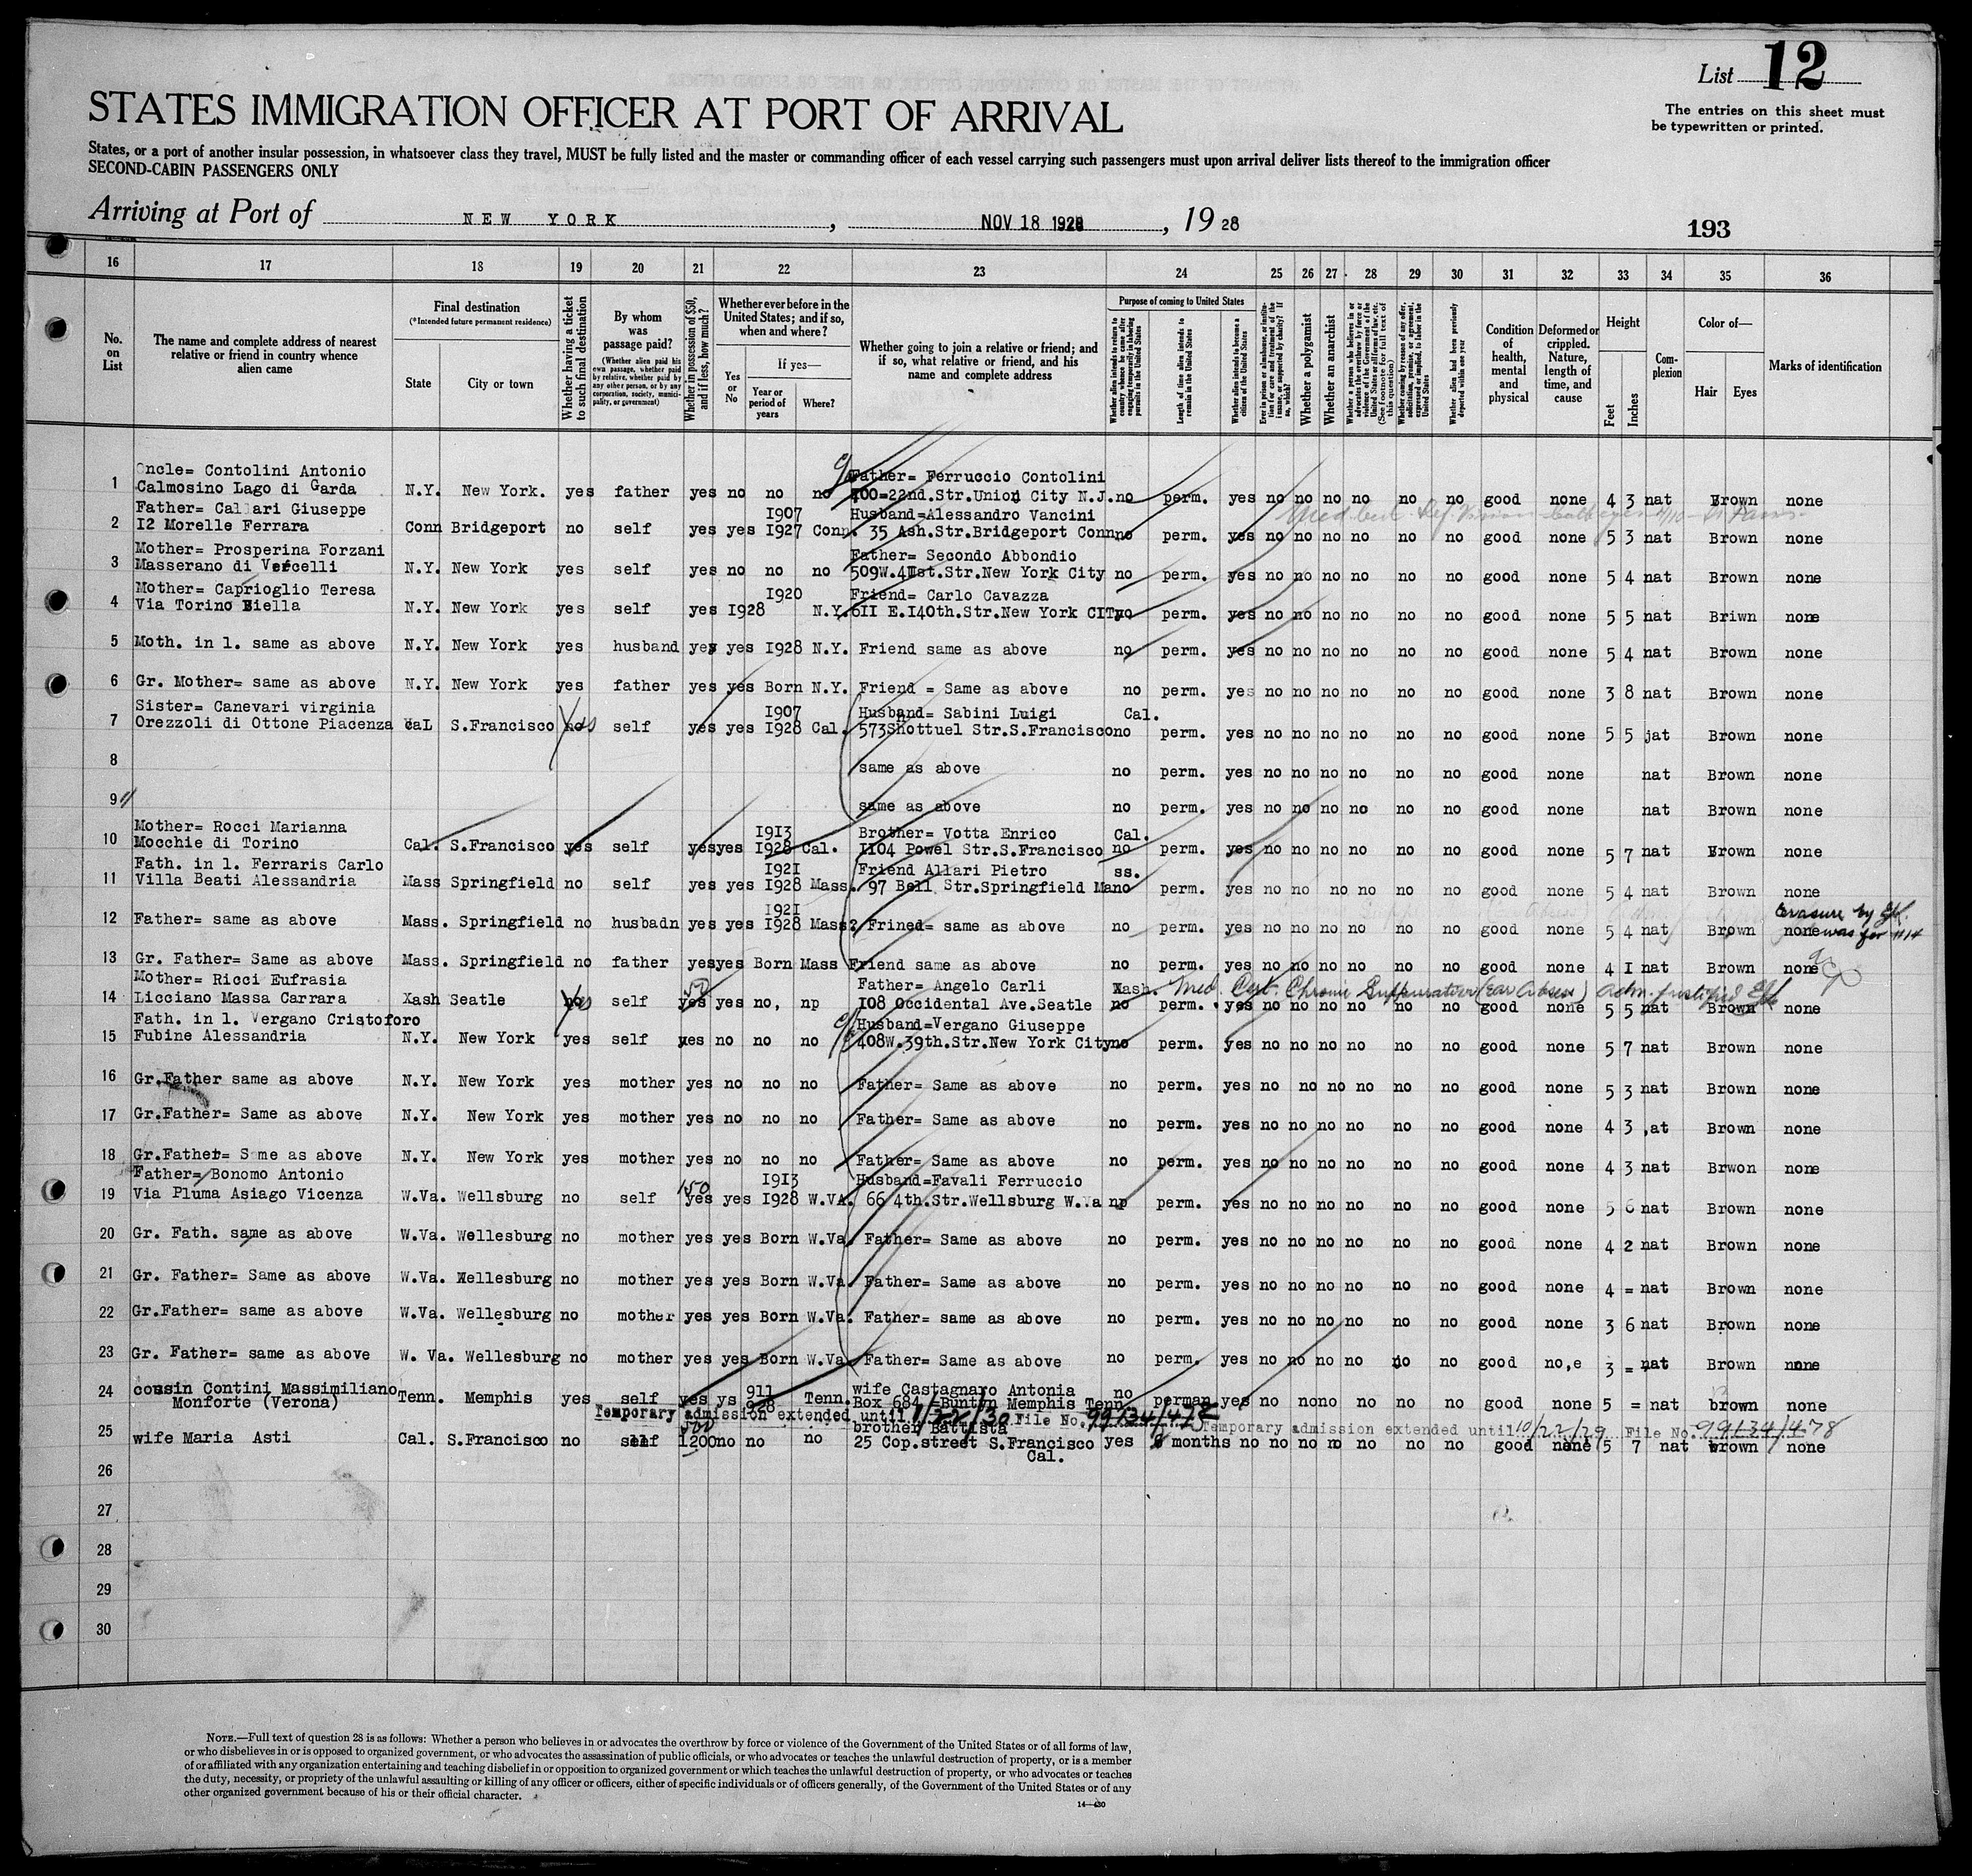 List 12
The entries on this sheet must
be typewritten or printed.
STATES IMMIGRATION OFFICER AT PORT OF ARRIVAL
States, or a port of another insular possession, in whatsoever class they travel, MUST be fully listed and the master or commanding officer of each vessel carrying such passengers must upon arrival deliver lists thereof to the immigration officer
SECOND-CABIN PASSENGERS ONLY
Arriving at Port of NEW YORK, NOV 18 1928, 19 28
193
16 17 18 19 20 21 22 23 24 25 26 27 28 29 30 31 32 33 34 35 36
No. on List
The name and complete address of nearest relative or friend in country whence alien came
Final destination (*Intended future permanent residence)
State
City or town
Whether having a ticket to such final destination
By whom was passage paid?
(Whether alien paid his own passage, whether paid by relative, whether paid by any other person, or by any corporation, society, municipality, or government)
Whether in possession of $50, and if less, how much?
Whether ever before in the United States; and if so, when and where?
Yes or No
If yes—
Year or period of years
Where?
Whether going to join a relative or friend; and if so, what relative or friend, and his name and complete address
Purpose of coming to United States
Whether alien intends to return to country whence he came after engaging temporarily in laboring pursuits in the United States
Length of time alien intends to remain in the United States
Whether alien intends to become a citizen of the United States
Ever in prison or almshouse, or institution for care and treatment of the insane, or supported by charity? If so, which?
Whether a polygamist
Whether an anarchist
Whether a person who believes in or advocates the overthrow by force or violence of the Government of the United States or all forms of law, etc. (See footnote for full text of this question)
Whether coming by reason of any offer, solicitation, promise, or agreement, expressed or implied, to labor in the United States
Whether alien had been previously deported within one year
Condition of health, mental and physical
Deformed or crippled. Nature, length of time, and cause
Height
Feet
Inches
Complexion
Color of—
Hair
Eyes
Marks of identification
Oncle= Contolini Antonio Father= Ferruccio Contolini
1 Calmosino Lago di Garda N.Y. New York. yes father yes no no no 400=22nd.Str.Union City N.J. no perm. yes no no no no no no good none 4 3 nat Brown none
Father= Callari Giuseppe 1907 Husband=Alessandro Vancini
2 I2 Morelle Ferrara Conn Bridgeport no self yes yes I927 Conn. 35 Ash.Str.Bridgeport Conn no perm. yes no no no no no no good none 5 3 nat Brown none
Mother= Prosperina Forzani Father= Secondo Abbondio
3 Masserano di Vercelli N.Y. New York yes self yes no no no 509W.4Ist.Str.New York City no perm. yes no no no no no no good none 5 4 nat Brown none
Mother= Caprioglio Teresa I920 Friend= Carlo Cavazza
4 Via Torino Biella N.Y. New York yes self yes I928 N.Y. 6II E.I40th.Str.New York CITy no perm. yes no no no no no no good none 5 5 nat Briwn none
5 Moth. in l. same as above N.Y. New York yes husband yes yes I928 N.Y. Friend same as above no perm. yes no no no no no no good none 5 4 nat Brown none
6 Gr. Mother= same as above N.Y. New York yes father yes yes Born N.Y. Friend = Same as above no perm. yes no no no no no no good none 3 8 nat Brown none
Sister= Canevari virginia I907 Husband= Sabini Luigi Cal.
7 Orezzoli di Ottone Piacenza CaL S.Francisco no yes self yes yes I928 Cal. 573Shottuel Str.S.Francisco no perm. yes no no no no no no good none 5 5 jat Brown none
8 same as above no perm. yes no no no no no no good none nat Brown none
9 same as above no perm. yes no no no no no no good none nat Brown none
Mother= Rocci Marianna I9I3 Brother= Votta Enrico Cal.
10 Mocchie di Torino Cal. S.Francisco yes self yes yes I928 Cal. II04 Powel Str.S.Francisco no perm. yes no no no no no no good none 5 7 nat Brown none
Fath. in l. Ferraris Carlo I92I Friend Allari Pietro ss.
11 Villa Beati Alessandria Mass Springfield no self yes yes I928 Mass. 97 Bell Str.Springfield Ma no perm. yes no no no no no no good none 5 4 nat Brown none
I92I Erasure by
12 Father= same as above Mass. Springfield no husbadn yes yes I928 Mass? Frined= same as above no perm. yes no no no no no no good none 5 4 nat Brown none was for #14
13 Gr. Father= Same as above Mass. Springfield no father yes yes Born Mass Friend same as above no perm. yes no no no no no no good none 4 I nat Brown none
Mother= Ricci Eufrasia 50 Father= Angelo Carli Wash. Med. Cert. Chronic Suppuration (Ear Abscess) Adm.
14 Licciano Massa Carrara Xash Seatle no yes self yes yes no, np I08 Occidental Ave.Seatle no perm. yes no no no no no no good none 5 5 nat Brown none
Fath. in l. Vergano Cristoforo Husband=Vergano Giuseppe
15 Fubine Alessandria N.Y. New York yes self yes no no no 408W.39th.Str.New York City no perm. yes no no no no no no good none 5 7 nat Brown none
16 Gr.Father same as above N.Y. New York yes mother yes no no no Father= Same as above no perm. yes no no no no no no good none 5 3 nat Brown none
17 Gr.Father= Same as above N.Y. New York yes mother yes no no no Father= Same as above no perm. yes no no no no no no good none 4 3 ,at Brown none
18 Gr.Father= Same as above N.Y. New York yes mother yes no no no Father= Same as above no perm. yes no no no no no no good none 4 3 nat Brwon none
Father= Bonomo Antonio 150 I9I3 Husband=Favali Ferruccio
19 Via Pluma Asiago Vicenza W.Va. Wellsburg no self yes yes I928 W.VA. 66 4th.Str.Wellsburg W.Va np perm. yes no no no no no no good none 5 6 nat Brown none
20 Gr. Fath. same as above W.Va. Wellesburg no mother yes yes Born W.Va. Father= Same as above no perm. yes no no no no no no good none 4 2 nat Brown none
21 Gr. Father= Same as above W.Va. Wellesburg no mother yes yes Born W.Va. Father= Same as above no perm. yes no no no no no no good none 4 = nat Brown none
22 Gr.Father= same as above W.Va. Wellesburg no mother yes yes Born W.Va. Father= same as above no perm. yes no no no no no no good none 3 6 nat Brown none
23 Gr. Father= same as above W. Va. Wellesburg no mother yes yes Born W.Va. Father= Same as above no perm. yes no no no no no no good no,e 3 = nat Brown none
cousin Contini Massimiliano 911 wife Castagnaro Antonia no
24 Monforte (Verona) Tenn. Memphis yes self yes ys 928 Tenn. Box 684 Bunttn Memphis Tenn perman yes no no no no no no good none 5 = nat brown none
Temporary admission extended until 1/22/30 File No. 99134/478 Temporary admission extended until 10/22/29 File No. 99134/478
500 brother Battista
25 wife Maria Asti Cal. S.Francisco no self I200 no no no 25 Cop.street S.Francisco yes 6 months no no no no no no no good none 5 7 nat brown none
Cal.
26
27
28
29
30
NOTE.—Full text of question 28 is as follows: Whether a person who believes in or advocates the overthrow by force or violence of the Government of the United States or of all forms of law,
or who disbelieves in or is opposed to organized government, or who advocates the assassination of public officials, or who advocates or teaches the unlawful destruction of property, or is a member
of or affiliated with any organization entertaining and teaching disbelief in or opposition to organized government or which teaches the unlawful destruction of property, or who advocates or teaches
the duty, necessity, or propriety of the unlawful assaulting or killing of any officer or officers, either of specific individuals or of officers generally, of the Government of the United States or of any
other organized government because of his or their official character.
14—430